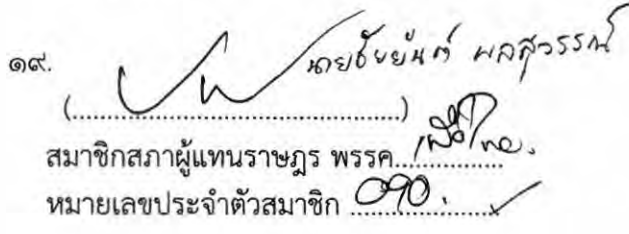 ๑๙. นายชัยยันต์ ผลสุวรรณ์
(........................................)
สมาชิกสภาผู้แทนราษฎร พรรค เพื่อไทย.
หมายเลขประจำตัวสมาชิก ๐๙๐.